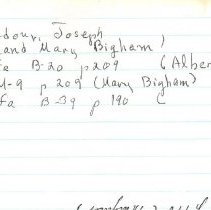 dour, Joseph
and Mary Bigham)
fa B-20 p209 (Alber
M-9 p 209 (Mary Bigham)
fa B-39 p 190 C